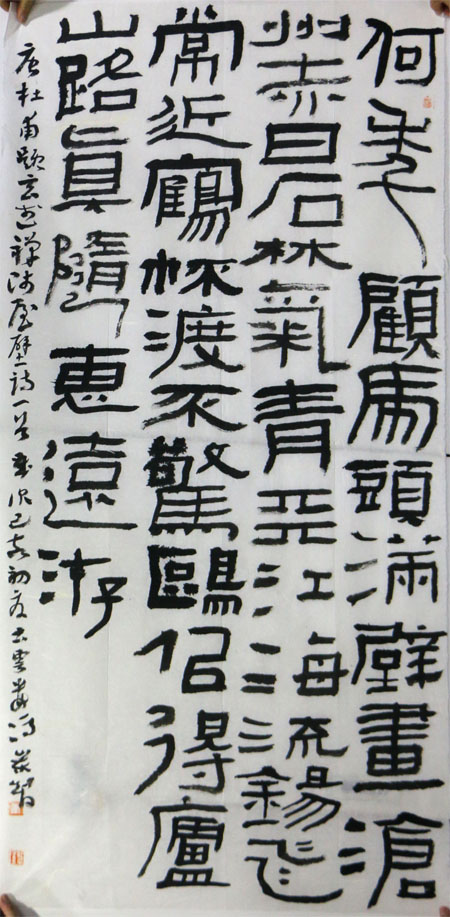 何年顧虎頭滿壁畫滄
州赤日石林氣青天江海流錫飛
常近鶴杯渡不驚鷗似得廬
山路眞隨惠遠游
唐杜甫題玄武禪師屋壁詩一首歲次己亥初夏